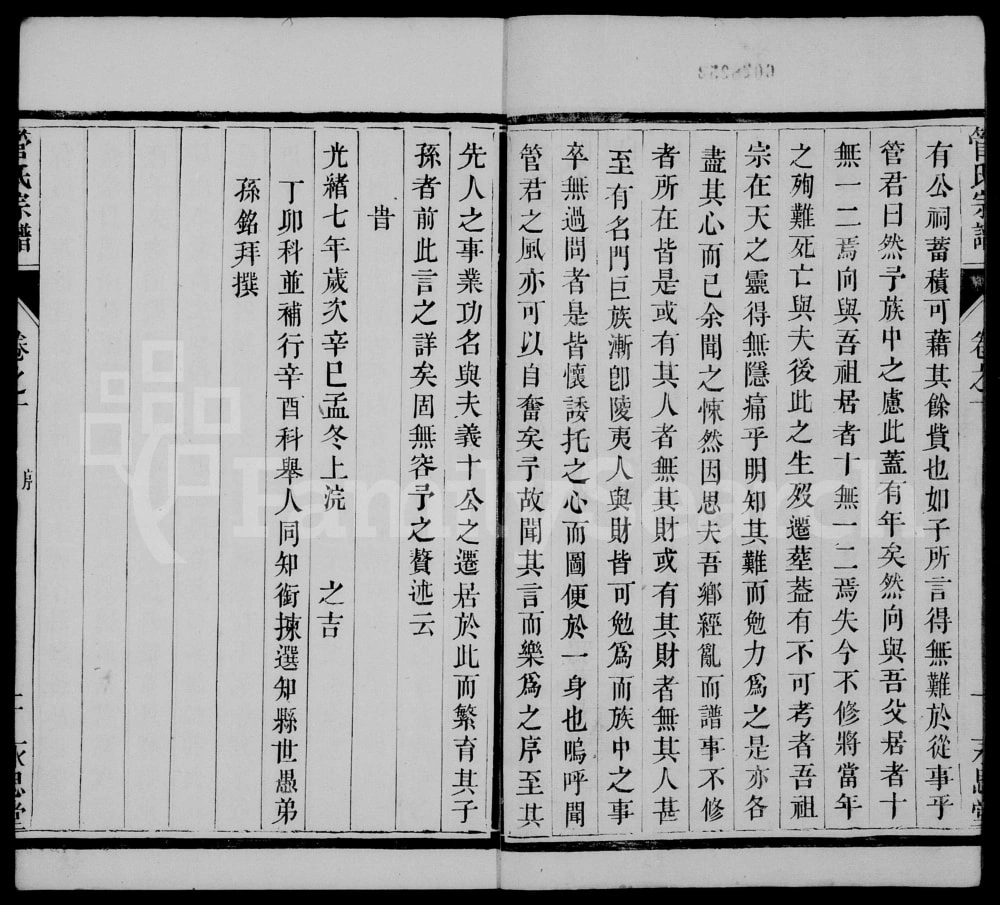 管氏宗譜
卷之
有公祠蓄積可藉其餘貲也如子所言得無難於從事乎
管君曰然予族中之慮此蓋有年矣然向與吾父居者十
無一二焉向與吾祖居者十無一二焉失今不修將當年
之殉難死亡與夫後此之生歿遷塟葢有不可考者吾祖
宗在天之靈得無隱痛乎明知其難而勉力爲之是亦各
盡其心而已余聞之悚然因思夫吾鄉經亂而譜事不修
者所在皆是或有其人者無其財或有其財者無其人甚
至有名門巨族漸卽陵夷人與財皆可勉爲而族中之事
卒無過問者是皆懷諉托之心而圖便於一身也嗚呼聞
管君之風亦可以自奮矣予故聞其言而樂爲之序至其
先人之事業功名與夫義十公之遷居於此而繁育其子
孫者前此言之詳矣固無容予之贅述云
旹
光緒七年歲次辛巳孟冬上浣 之吉
丁卯科並補行辛酉科舉人同知銜揀選知縣世愚弟
孫銘拜撰
管氏宗譜
卷之一
永思堂
FamilySearch